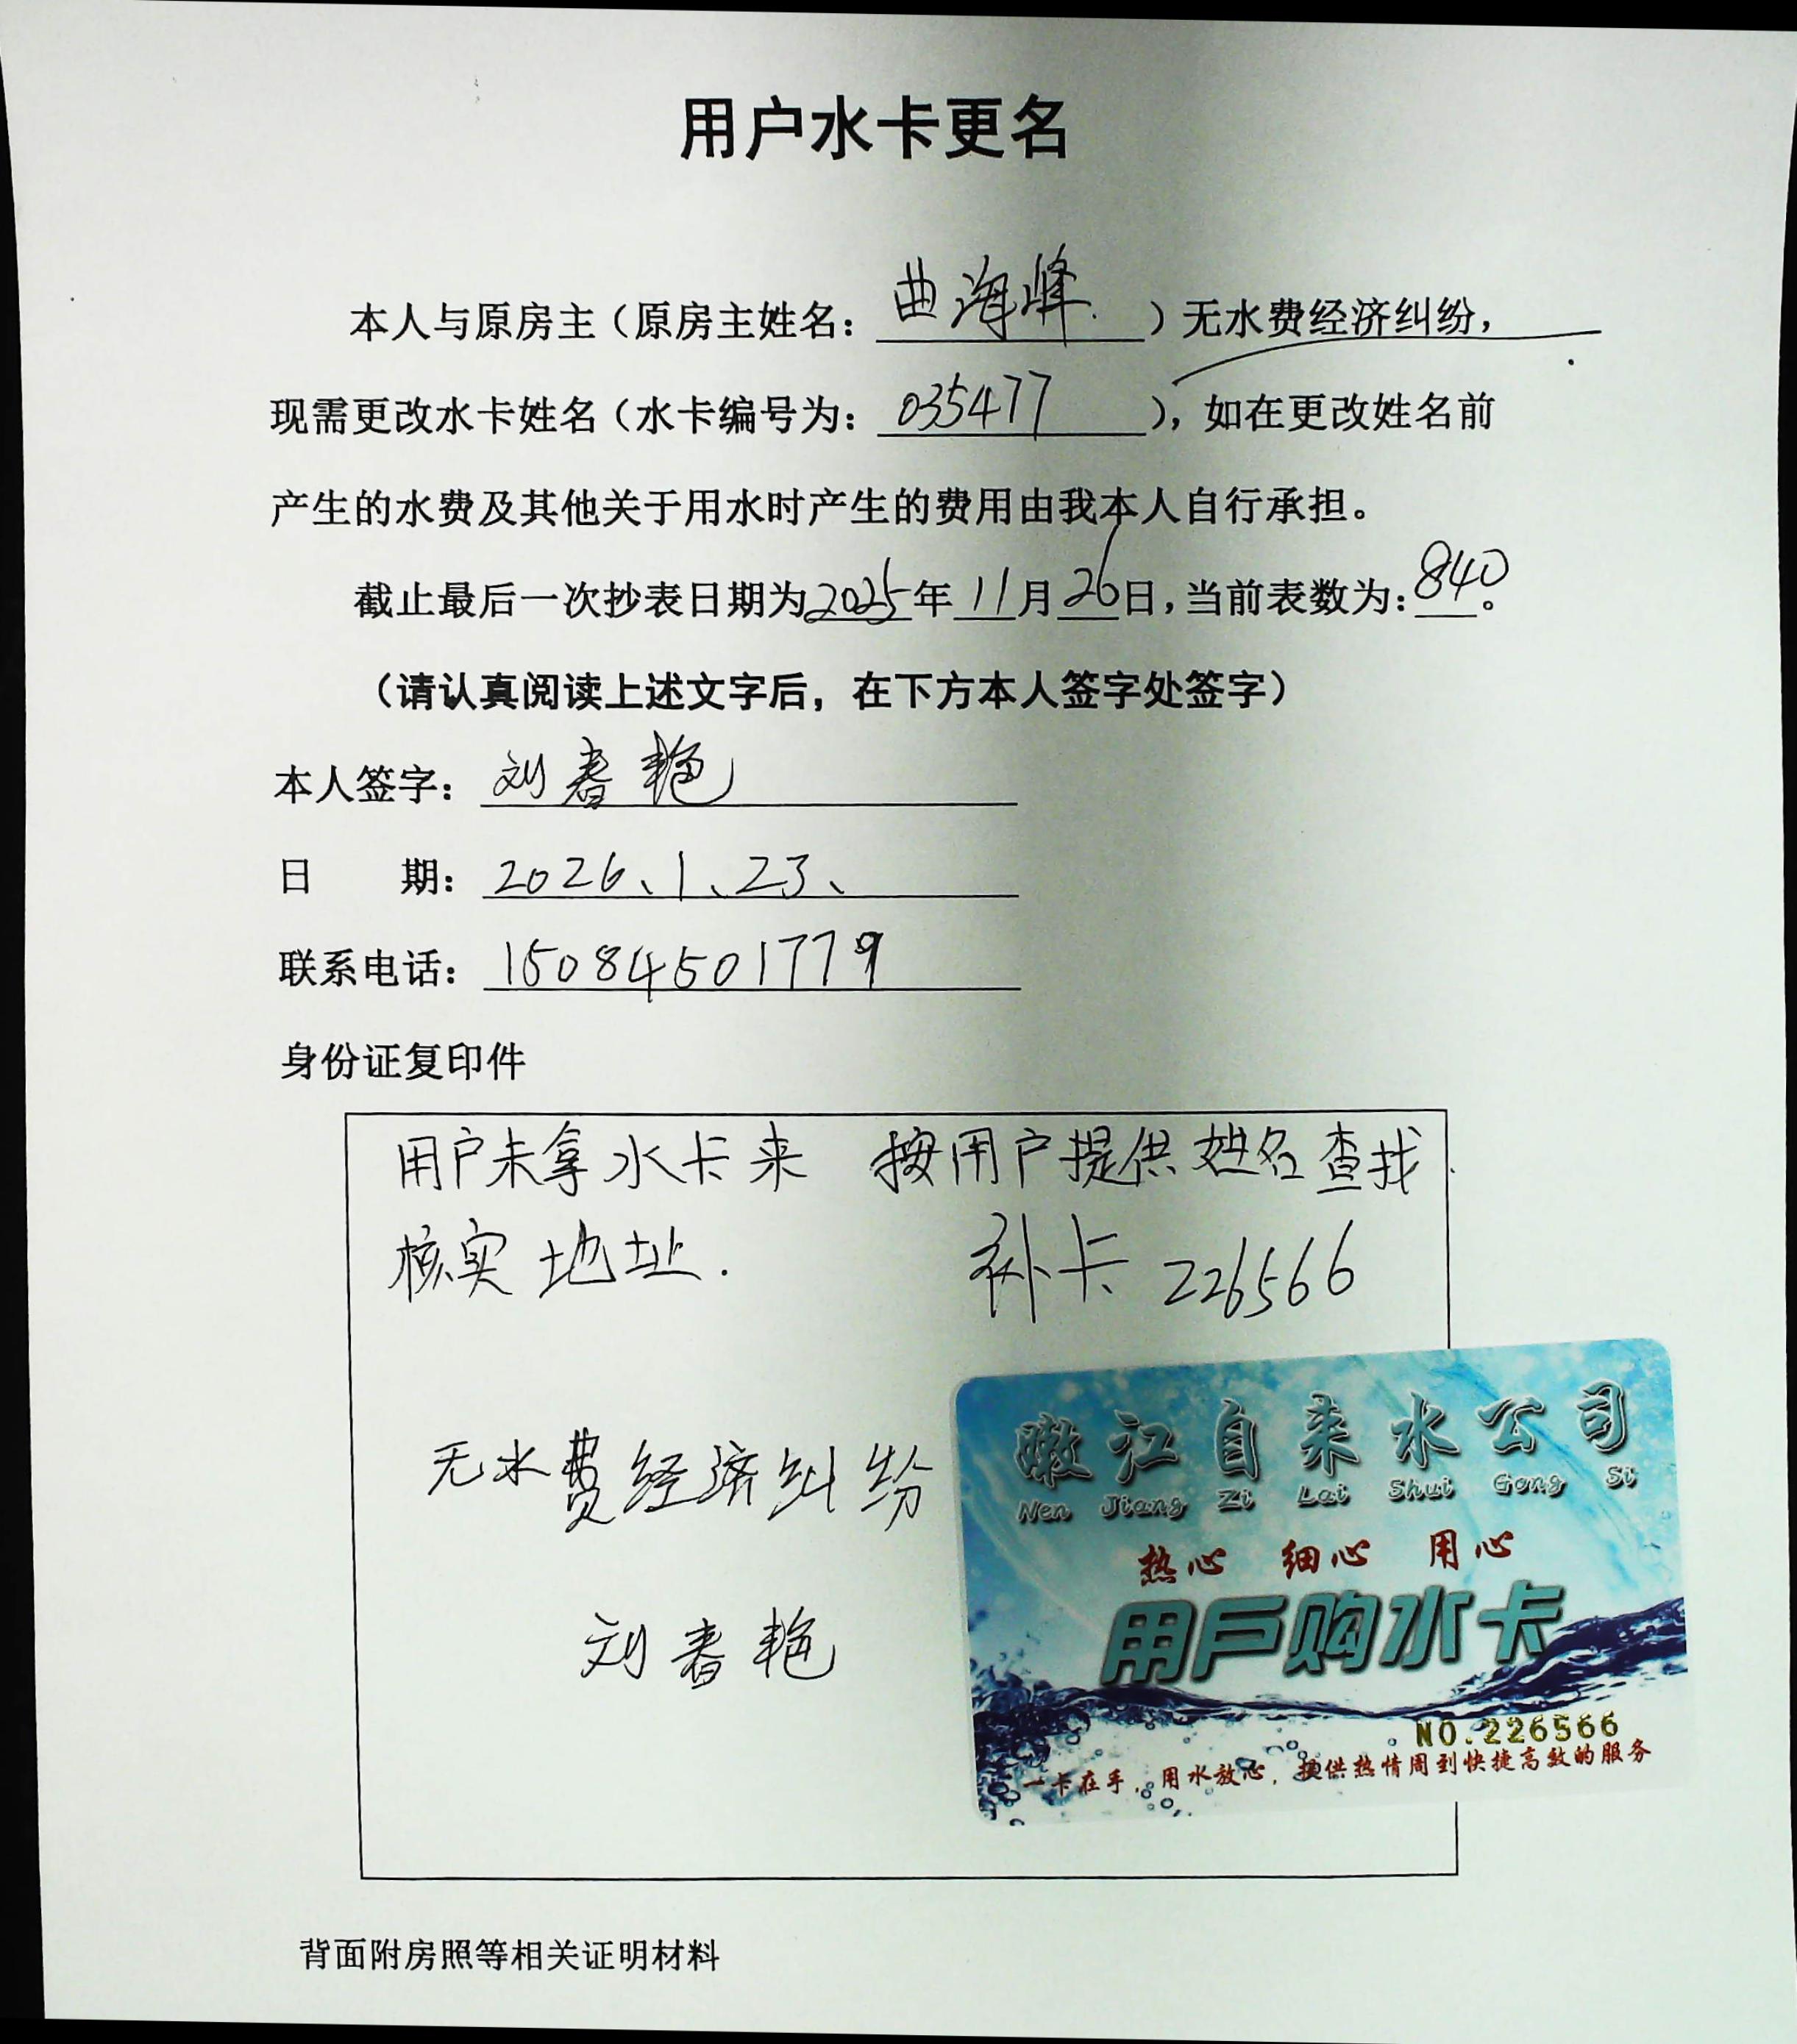 用户水卡更名
本人与原房主（原房主姓名：曲海峰.）无水费经济纠纷，
现需更改水卡姓名（水卡编号为：035477），如在更改姓名前
产生的水费及其他关于用水时产生的费用由我本人自行承担。
截止最后一次抄表日期为2025年11月26日，当前表数为：840。
（请认真阅读上述文字后，在下方本人签字处签字）
本人签字：刘春艳
日 期：2026、1、23、
联系电话：15084501779
身份证复印件
用户未拿水卡来 按用户提供姓名查找
核实地址. 补卡 226566
无水费经济纠纷
刘春艳
嫩江自来水公司
Nen Jiang Zi Lai Shui Gong Si
热心 细心 用心
用户购水卡
NO.226566
一卡在手，用水放心，提供热情周到快捷高效的服务
背面附房照等相关证明材料